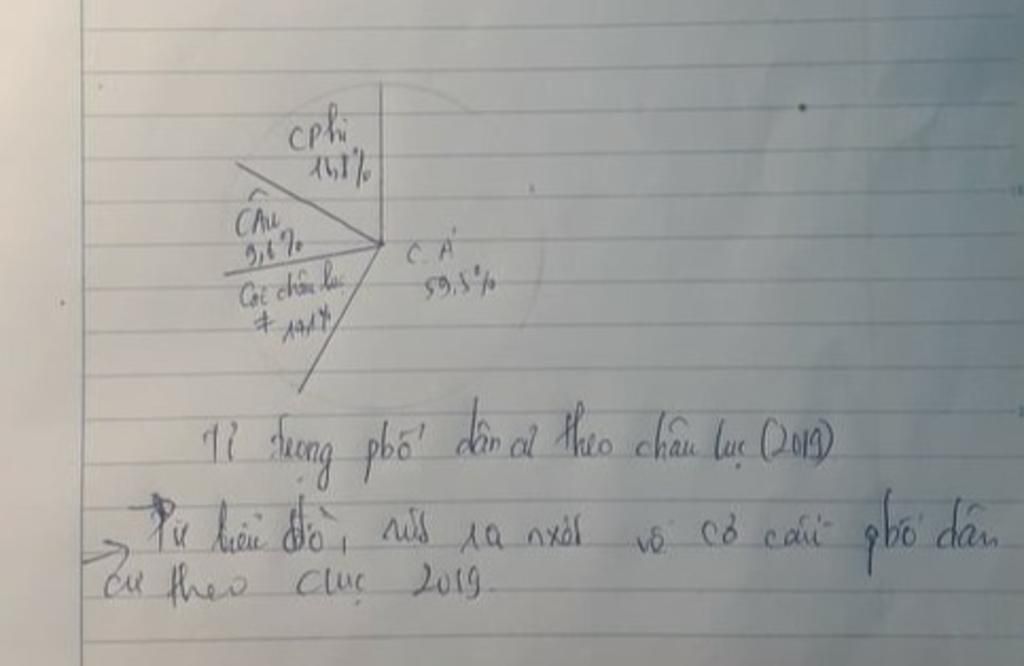 CPhi
16,8%
CÂu
9,6%
C.Á
59,5%
Các châu lục
≠ 14,1%
Tỉ trọng phố dân cư theo châu lục (2019)
Từ biểu đồ, rút ra nxét về cơ cấu phố dân
cư theo clục 2019.